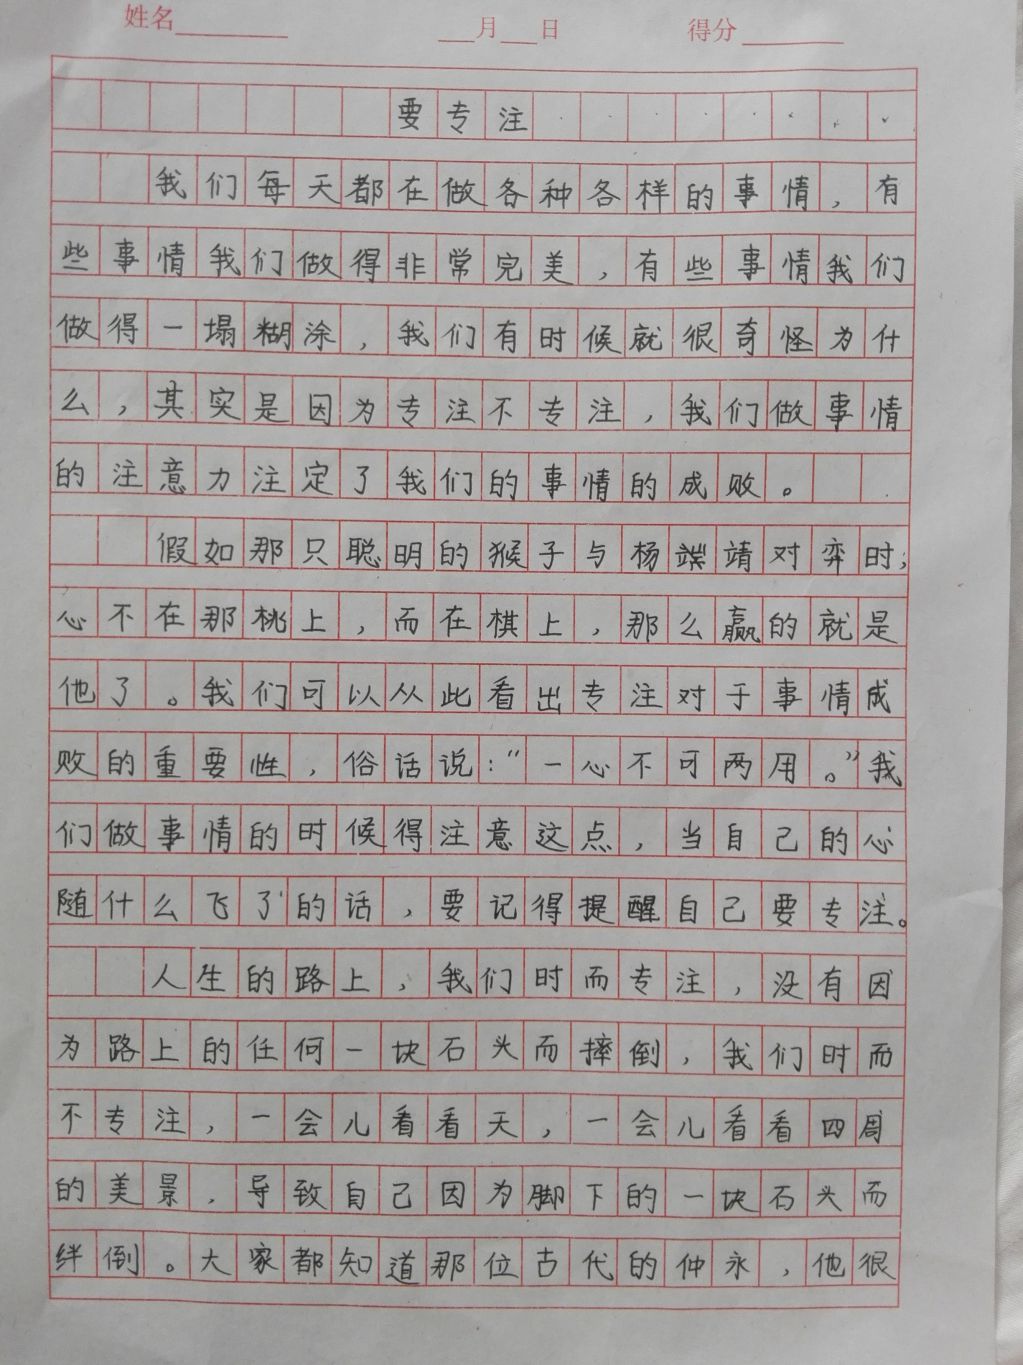 姓名 月 日 得分
要专注
我们每天都在做各种各样的事情，有
些事情我们做得非常完美，有些事情我们
做得一塌糊涂，我们有时候就很奇怪为什
么，其实是因为专注不专注，我们做事情
的注意力注定了我们的事情的成败。
假如那只聪明的猴子与杨端靖对弈时；
心不在那桃上，而在棋上，那么赢的就是
他了。我们可以从此看出专注对于事情成
败的重要性，俗话说：“一心不可两用。”我
们做事情的时候得注意这点，当自己的心
随什么飞了的话，要记得提醒自己要专注。
人生的路上，我们时而专注，没有因
为路上的任何一块石头而摔倒，我们时而
不专注，一会儿看看天，一会儿看看四周
的美景，导致自己因为脚下的一块石头而
绊倒。大家都知道那位古代的仲永，他很